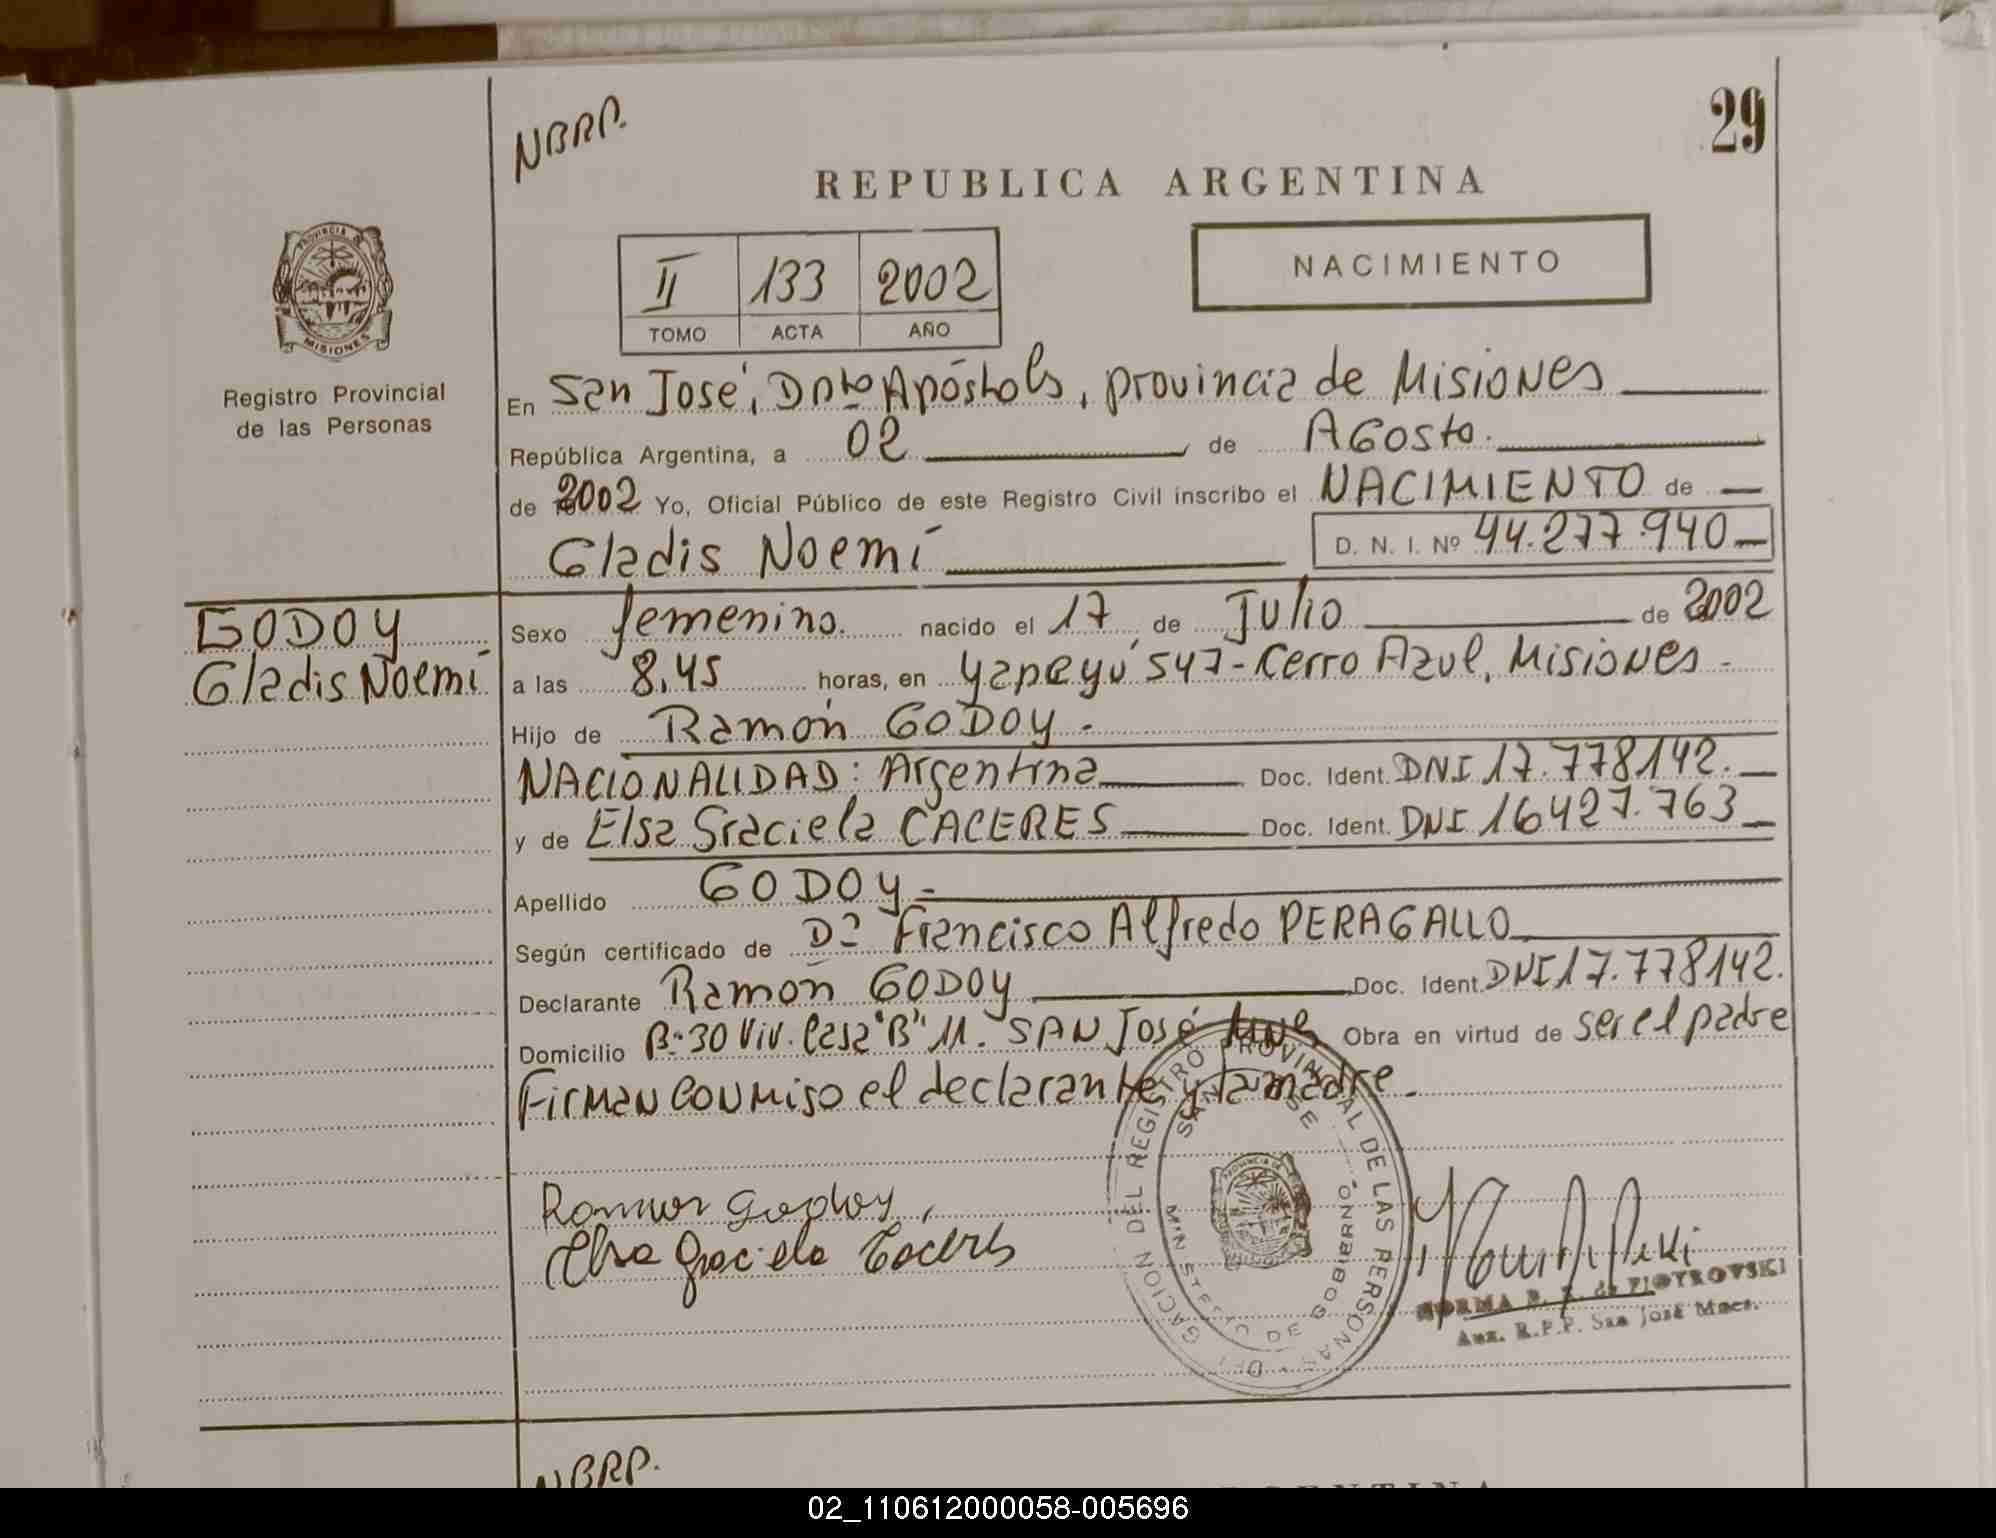 NBRP.
29
REPUBLICA ARGENTINA
II 133 2002
TOMO ACTA AÑO
NACIMIENTO
PROVINCIA DE
MISIONES
Registro Provincial
de las Personas
En San José, Dpto Apóstoles, provincia de Misiones
República Argentina, a 02 de Agosto.
de 2002 Yo, Oficial Público de este Registro Civil inscribo el NACIMIENTO de
Gladis Noemí D. N. I. Nº 44.277.940
GODOY
Gladis Noemí
Sexo femenino. nacido el 17 de Julio de 2002
a las 8,45 horas, en Yapeyú 547-Cerro Azul, Misiones -
Hijo de Ramón GODOY -
NACIONALIDAD: Argentina Doc. Ident. DNI 17.778142.
y de Elsa Graciela CACERES Doc. Ident. DNI 16427.763
Apellido GODOY -
Según certificado de Dº Francisco Alfredo PERAGALLO
Declarante Ramón GODOY Doc. Ident. DNI 17.778142.
Domicilio Bº 30 Viv. Casa "B" 11. SAN José Mnes Obra en virtud de ser el padre
Firman conmigo el declarante y la madre.
Ramon Godoy,
Elsa Graciela Caceres
DELEGACION DEL REGISTRO PROVINCIAL DE LAS PERSONAS
SAN JOSE
MINISTERIO DE GOBIERNO
NORMA B. de PIOTROVSKI
Aux. R.P.P. San José Mnes.
NBRP.
02_110612000058-005696